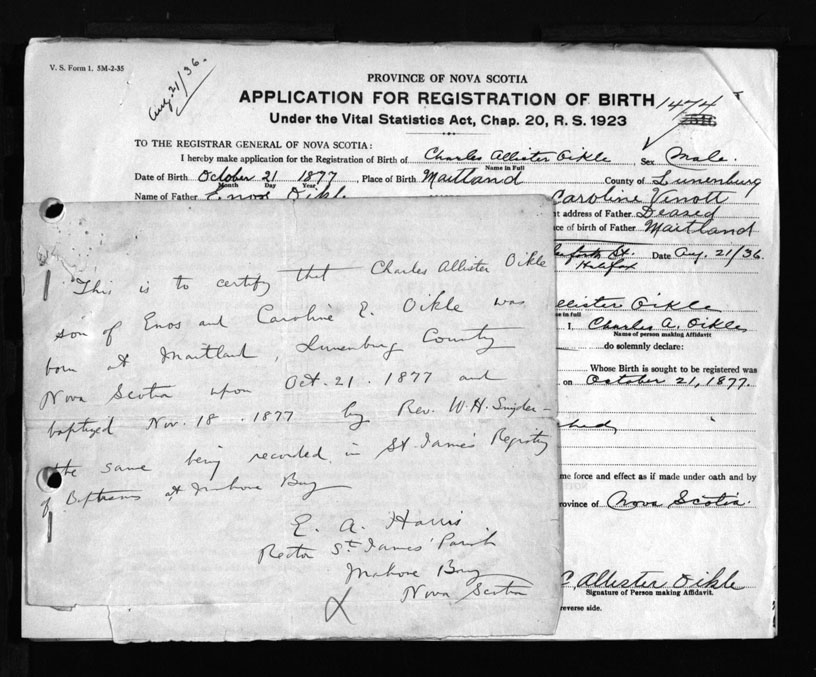 V. S. Form 1. 5M-2-35
Aug. 21/36.
PROVINCE OF NOVA SCOTIA
APPLICATION FOR REGISTRATION OF BIRTH 1474
Under the Vital Statistics Act, Chap. 20, R. S. 1923
TO THE REGISTRAR GENERAL OF NOVA SCOTIA:
I hereby make application for the Registration of Birth of Charles Allister Oikle, Sex Male.
Name in Full
Date of Birth October 21 1877, Place of Birth Maitland County of Lunenburg
Month Day Year
Name of Father Enos Oikl
Caroline Vinott
t address of Father Deased
ce of birth of Father Maitland
St. Date Aug. 21/36.
Halifax
llister Oikle
e in full
I, Charles A. Oikle,
Name of person making Affidavit
do solemnly declare:
Whose Birth is sought to be registered was
on October 21, 1877.
me force and effect as if made under oath and by
rovince of Nova Scotia.
C Allister Oikle
Signature of Person making Affidavit.
reverse side.
This is to certify that Charles Allister Oikle
son of Enos and Caroline E. Oikle was
born at Maitland, Lunenburg County
Nova Scotia upon Oct. 21. 1877 and
baptized Nov. 18. 1877 by Rev. W. H. Snyder-
the same being recorded in St James's Registry
of Baptisms at Mahone Bay
E. A. Harris
Rector St James' Parish
Mahone Bay
Nova Scotia
X